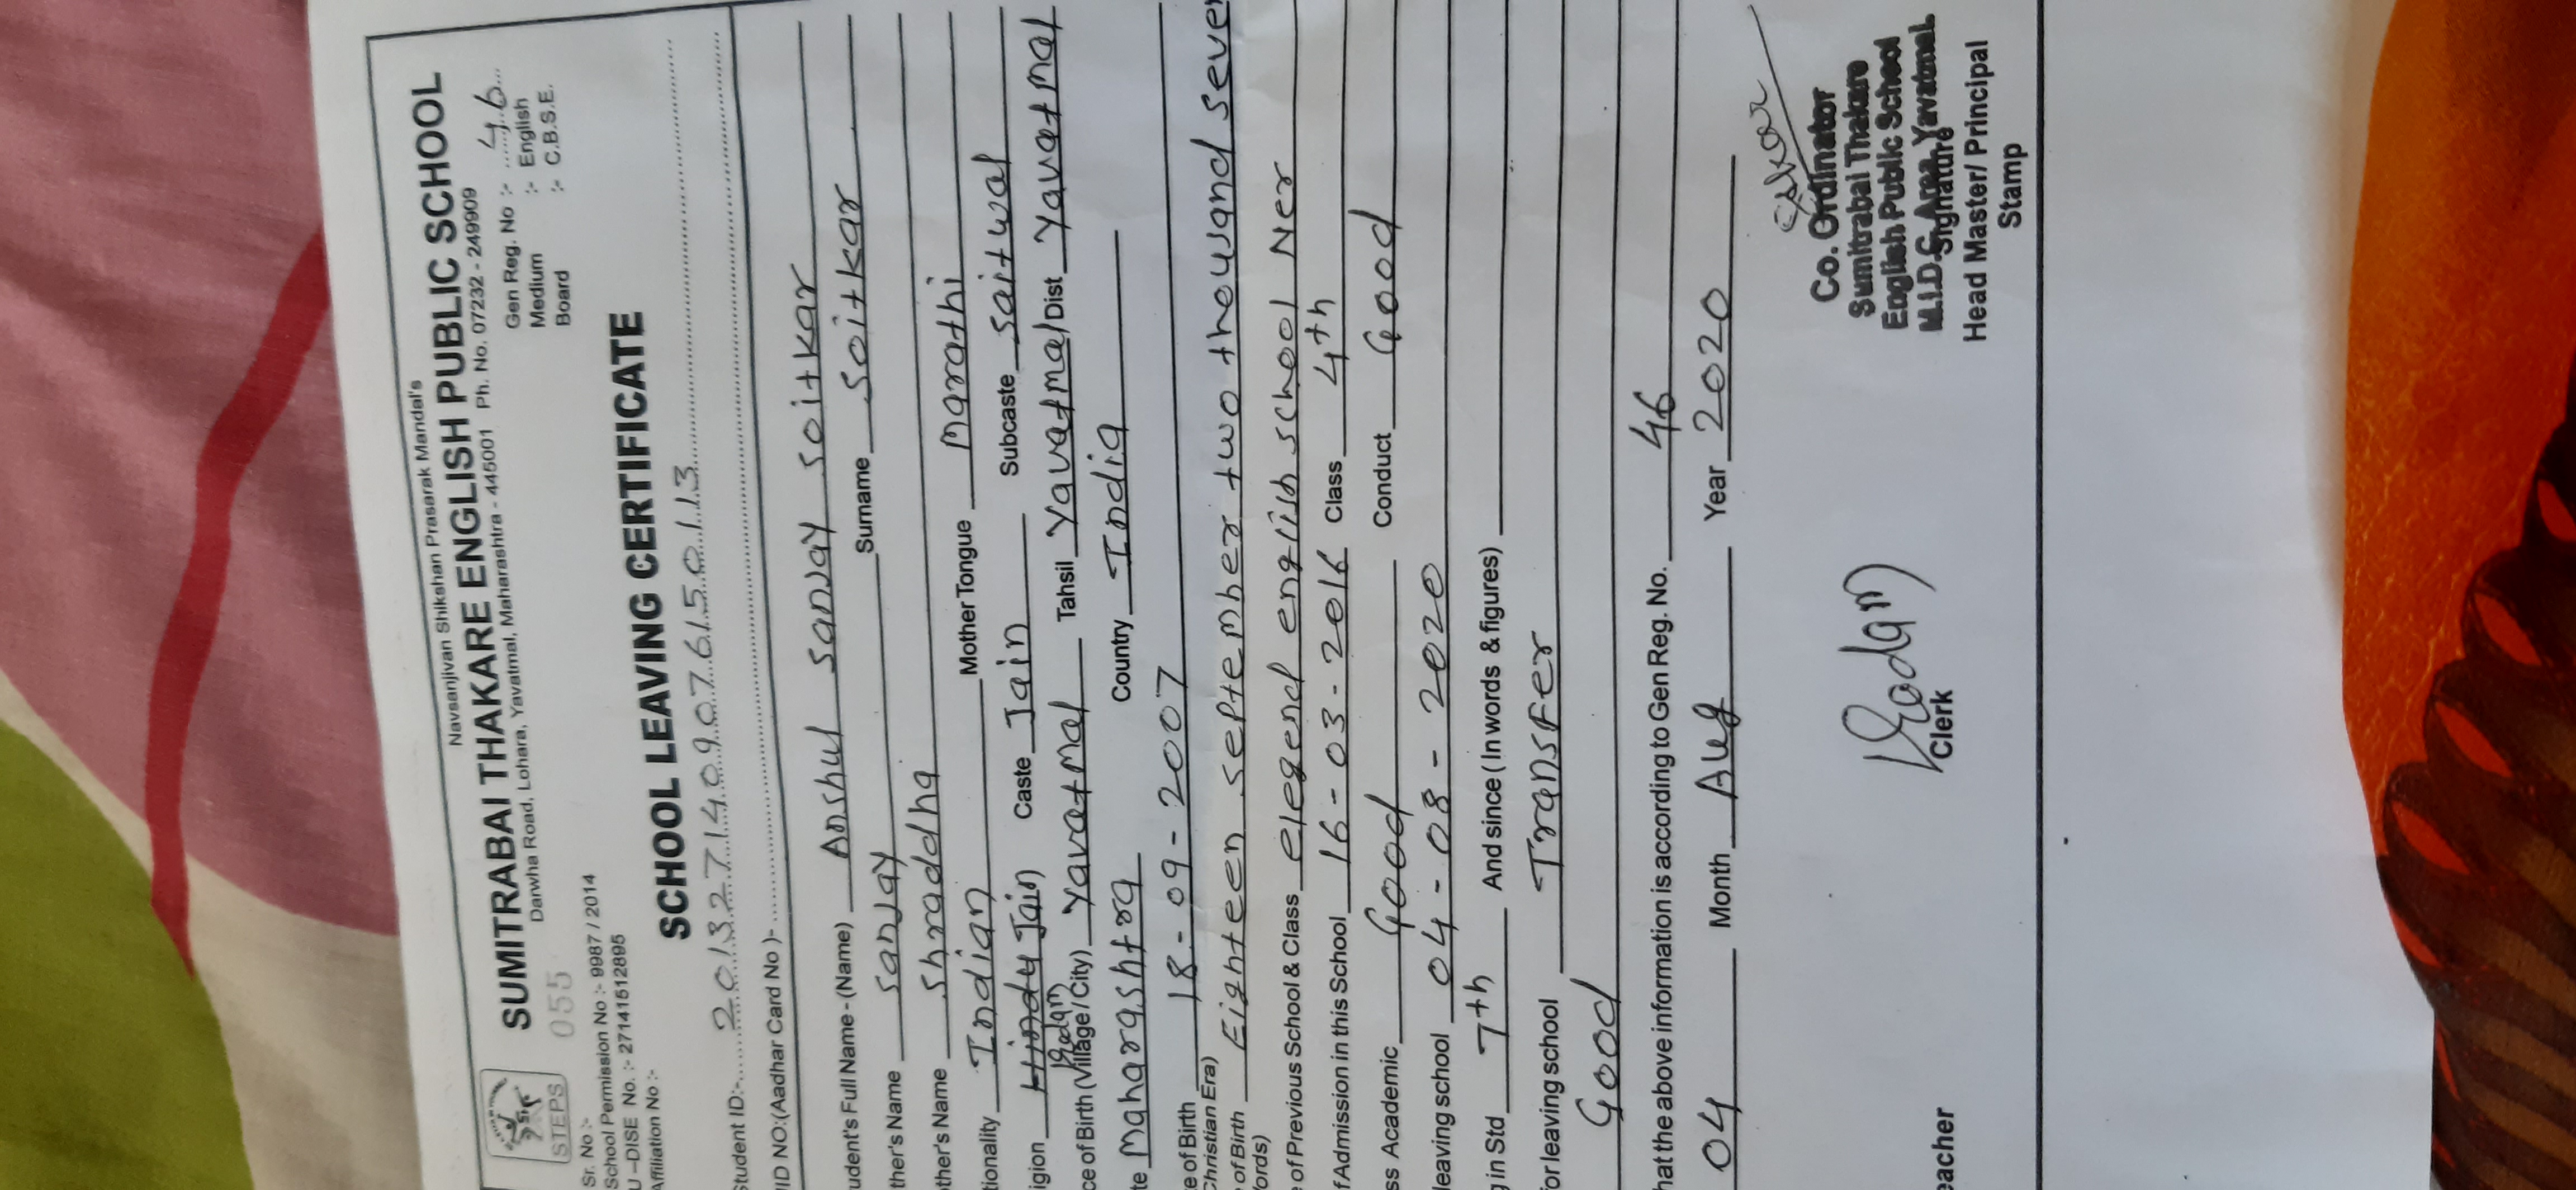 Navsanjivan Shikshan Prasarak Mandal's
SUMITRABAI THAKARE ENGLISH PUBLIC SCHOOL
Darwha Road, Lohara, Yavatmal, Maharashtra - 445001 Ph. No. 07232 - 249909
STEPS
Sr. No :- 055 Gen Reg. No :- 46
School Permission No :- 9987 / 2014 Medium :- English
U -DISE No. :- 27141512895 Board :- C.B.S.E.
Affiliation No :-
SCHOOL LEAVING CERTIFICATE
Student ID:- 2013271409076150113
ID NO:(Aadhar Card No )-
udent's Full Name - (Name) Anshul sanjay soitkar
ther's Name sanjay Surname soitkar
ther's Name shraddha
tionality Indian Mother Tongue marathi
igion Hindu Jain Caste Jain Subcaste saitwal
ce of Birth (Village / City) Yavatmal Tahsil Yavatmal Dist Yavatmal
te maharashtra Country India
e of Birth 18 - 09 - 2007
Christian Era)
of Birth Eighteen september two thousand seven
ords)
of Previous School & Class elegend english school Ner
f Admission in this School 16 - 03 - 2016 Class 4th
ss Academic Good Conduct Good
leaving school 04 - 08 - 2020
g in Std 7th And since ( In words & figures)
for leaving school Transfer
Good
hat the above information is according to Gen Reg. No. 46
04 Month Aug Year 2020
Co. Ordinator
Sumitrabai Thakare
English Public School
M.I.D.C. Area, Yavatmal.
eacher Clerk Signature
Head Master/ Principal
Stamp